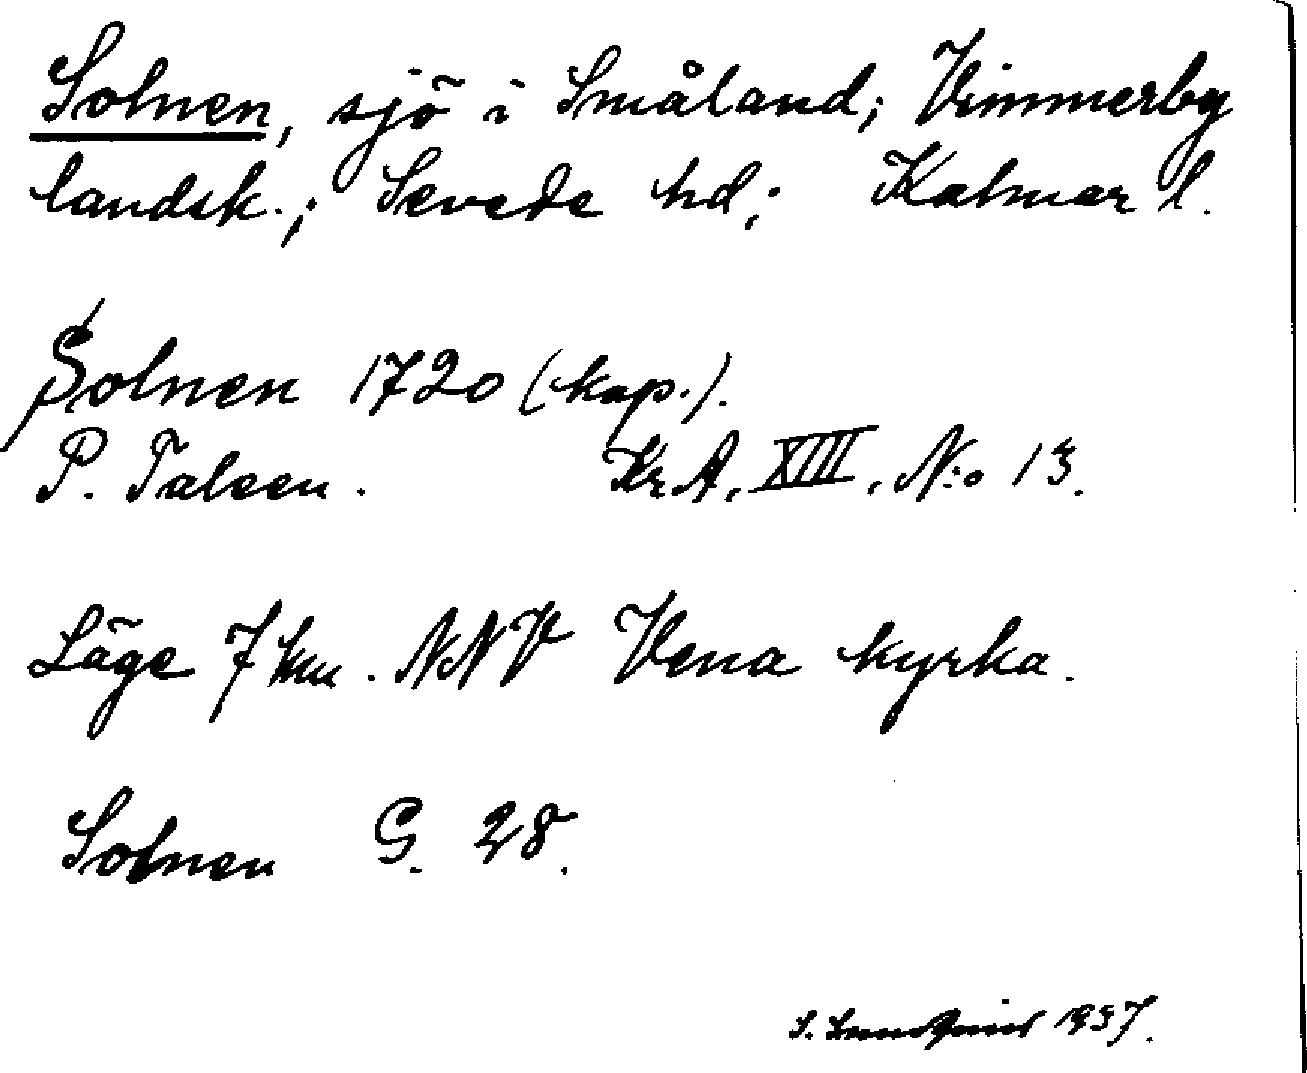 Solnen, sjö i Småland; Vimmerby
landsk.; Sevede hd; Kalmar l.
Solnen 1720 (kop.).
P. Taleen. KrA, XIII, N:o 13.
Läge 7 km. NNV Vena kyrka.
Solnen G. 28.
S. Lundqvist 1937.